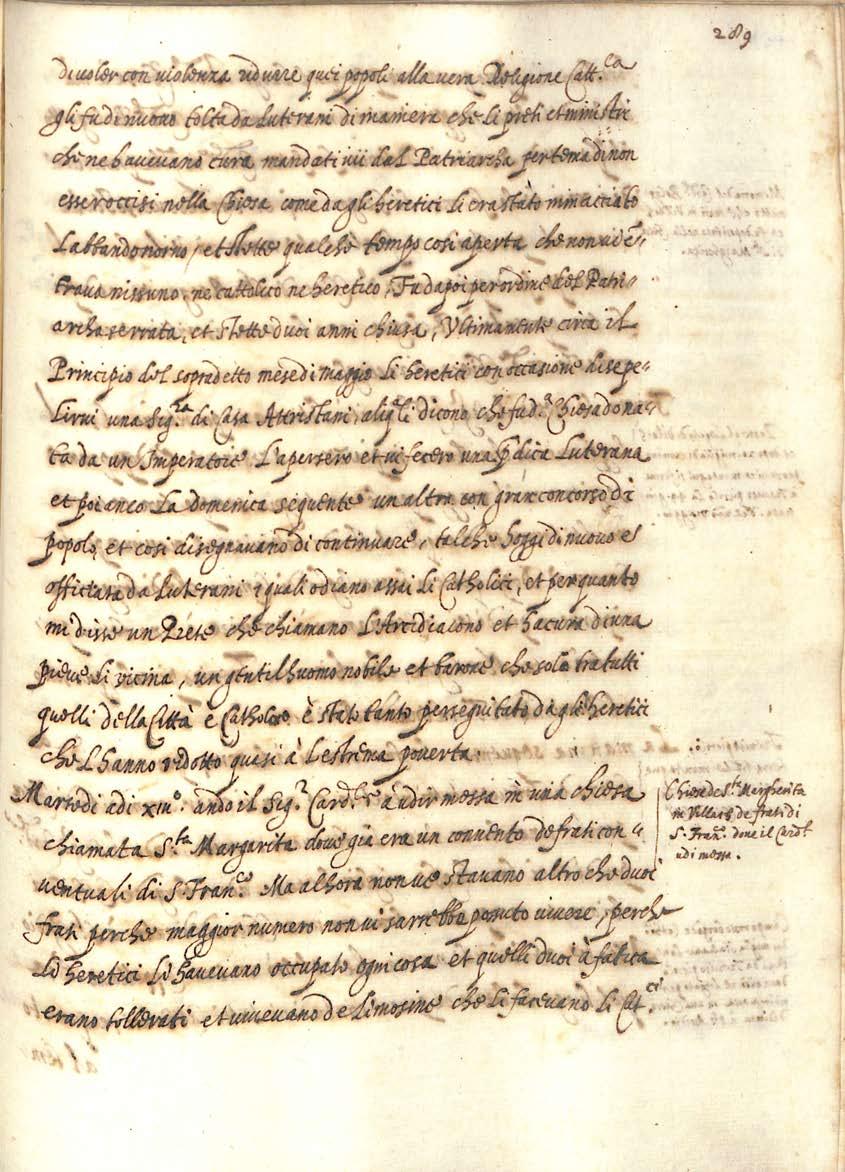 289
di voler con violenza ridurre quei popoli alla vera Religione Catt.ca
gli fu di nuovo tolta da Luterani di maniera che li preti et ministri
che ne havevano cura mandati ivi dal Patriarcha per tema di non
esser occisi nella Chiesa come dagli heretici li era stato minacciato
l'abbandonorno, et stette qualche tempo così aperta che non vi en=
trava nissuno, ne cattolico ne heretico, Fu dapoi per ordine del Patri=
archa serrata, et stette duoi anni chiusa, Ultimamente circa il
Principio del sopradetto mese di maggio li heretici con occasione di sepe=
lirvi una Sig.ra di Casa Attristani, a li q.li dicono che fu d.a Chiesa dona=
ta da un Imperatore l'apersero et vi fecero una p̄dica Luterana
et poi anco la domenica seguente un altra con gran concorso di
popolo, et così disegnavano di continuare, talche hoggi di nuovo e
officiata da Luterani i quali odiano assai li Catholici, et per quanto
mi disse un Prete che chiamano l'Arcidiacono et ha cura di una
pieve li vicina, un gentilhuomo nobile et barone che solo tra tutti
quelli della Città è Catholico è stato tanto perseguitato dagli heretici
che l'hanno ridotto quasi à l'estrema poverta.
Martedi adi xiiij°. andò il Sig.r Card.le à udir messa in una chiesa
chiamata S.ta Margarita dove già era un convento de frati con=
ventuali di S. Fran.co Ma alhora non ve stavano altro che duoi
frati perche maggior numero non vi sarrebbe possuto vivere, perche
li heretici li havevano occupato ogni cosa et quelli duoi à fatica
erano tollerati et vivevano de limosine che li facevano li Cat.ci
Chiesa de S.ta Margherita
in Villac de frati di
S. Fran.co dove il Card.l
udi messa.